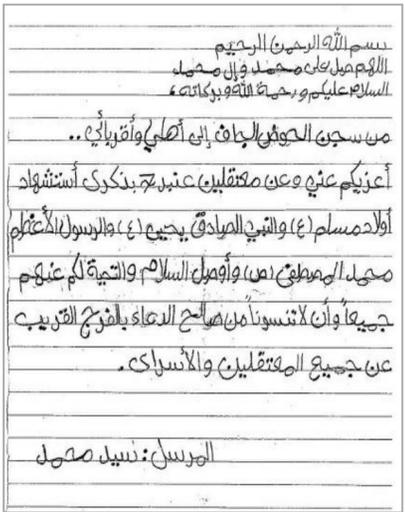 بسم الله الرحمن الرحيم
اللهم صل على محمد وآل محمد
السلام عليكم ورحمة الله وبركاته،
من سجن الحوض الجاف إلى أهلي وأقربائي..
أعزيكم عني وعن معتقلين عنبر 7 بذكرى أستشهاد
أولاد مسلم (ع) والنبي الصادق يحيى (ع) والرسول الأعظم
محمد المصطفى (ص) وأوصل السلام والتحية لكم عنهم
جميعاً وأن لاتنسونا من صالح الدعاء بالفرج القريب
عن جميع المعتقلين والأسرى.
المرسل: سيد محمد